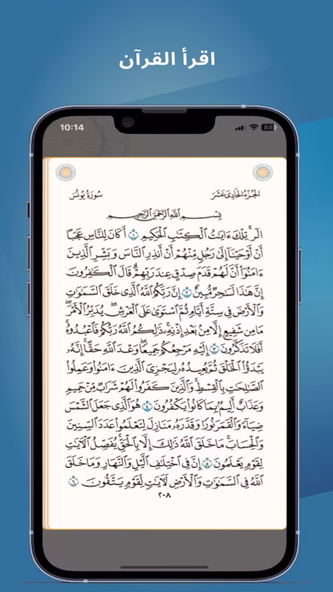 اقرأ القرآن
10:14
الجزء الحادي عشر
سورة يونس
بسم الله الرحمن الرحيم
الٓرۚ تِلۡكَ ءَايَٰتُ ٱلۡكِتَٰبِ ٱلۡحَكِيمِ ١ أَكَانَ لِلنَّاسِ عَجَبًا
أَنۡ أَوۡحَيۡنَآ إِلَىٰ رَجُلٖ مِّنۡهُمۡ أَنۡ أَنذِرِ ٱلنَّاسَ وَبَشِّرِ ٱلَّذِينَ
ءَامَنُوٓاْ أَنَّ لَهُمۡ قَدَمَ صِدۡقٍ عِندَ رَبِّهِمۡۗ قَالَ ٱلۡكَٰفِرُونَ
إِنَّ هَٰذَا لَسَٰحِرٞ مُّبِينٌ ٢ إِنَّ رَبَّكُمُ ٱللَّهُ ٱلَّذِي خَلَقَ ٱلسَّمَٰوَٰتِ
وَٱلۡأَرۡضَ فِي سِتَّةِ أَيَّامٖ ثُمَّ ٱسۡتَوَىٰ عَلَى ٱلۡعَرۡشِۖ يُدَبِّرُ ٱلۡأَمۡرَۖ
مَا مِن شَفِيعٍ إِلَّا مِنۢ بَعۡدِ إِذۡنِهِۦۚ ذَٰلِكُمُ ٱللَّهُ رَبُّكُمۡ فَٱعۡبُدُوهُۚ
أَفَلَا تَذَكَّرُونَ ٣ إِلَيۡهِ مَرۡجِعُكُمۡ جَمِيعٗاۖ وَعۡدَ ٱللَّهِ حَقًّاۚ إِنَّهُۥ
يَبۡدَؤُاْ ٱلۡخَلۡقَ ثُمَّ يُعِيدُهُۥ لِيَجۡزِيَ ٱلَّذِينَ ءَامَنُواْ وَعَمِلُواْ
ٱلصَّٰلِحَٰتِ بِٱلۡقِسۡطِۚ وَٱلَّذِينَ كَفَرُواْ لَهُمۡ شَرَابٞ مِّنۡ حَمِيمٖ
وَعَذَابٌ أَلِيمُۢ بِمَا كَانُواْ يَكۡفُرُونَ ٤ هُوَ ٱلَّذِي جَعَلَ ٱلشَّمۡسَ
ضِيَآءٗ وَٱلۡقَمَرَ نُورٗا وَقَدَّرَهُۥ مَنَازِلَ لِتَعۡلَمُواْ عَدَدَ ٱلسِّنِينَ
وَٱلۡحِسَابَۚ مَا خَلَقَ ٱللَّهُ ذَٰلِكَ إِلَّا بِٱلۡحَقِّۚ يُفَصِّلُ ٱلۡأٓيَٰتِ
لِقَوۡمٖ يَعۡلَمُونَ ٥ إِنَّ فِي ٱخۡتِلَٰفِ ٱلَّيۡلِ وَٱلنَّهَارِ وَمَا خَلَقَ
ٱللَّهُ فِي ٱلسَّمَٰوَٰتِ وَٱلۡأَرۡضِ لَأٓيَٰتٖ لِّقَوۡمٖ يَتَّقُونَ ٦
٢٠٨